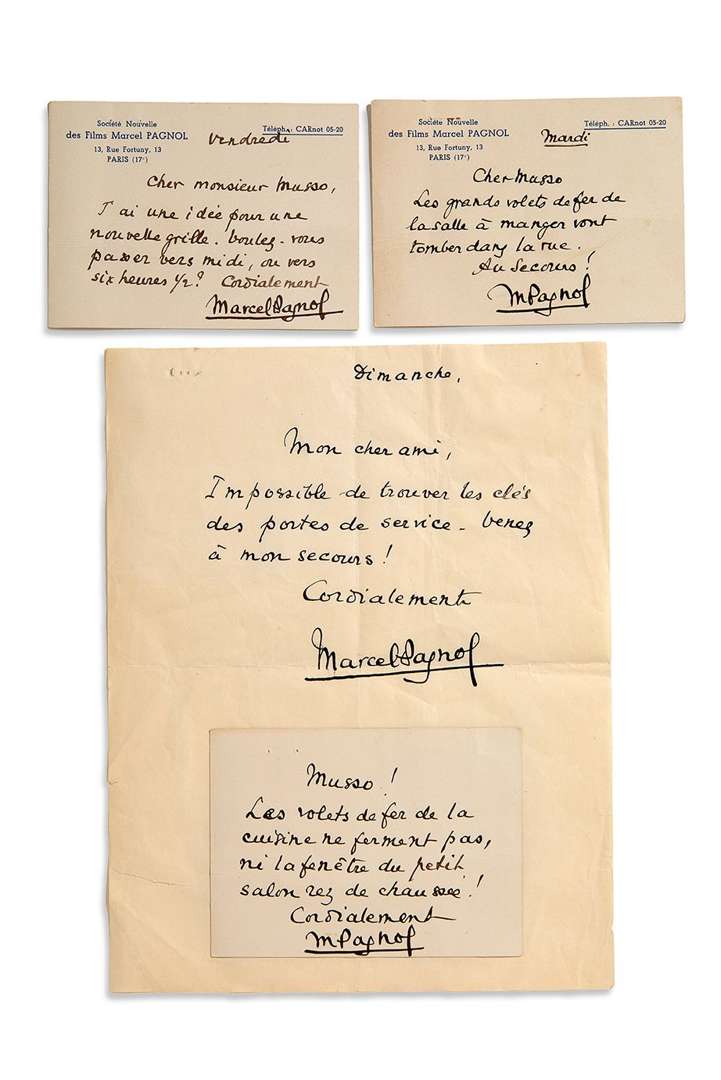 Société Nouvelle
des Films Marcel PAGNOL
13, Rue Fortuny, 13
PARIS (17e)
Téléph. : CARnot 05-20
Vendredi
Cher monsieur Musso,
J'ai une idée pour une
nouvelle grille. Voulez-vous
passer vers midi, ou vers
six heures 1/2? Cordialement
Marcel Pagnol
Société Nouvelle
des Films Marcel PAGNOL
13, Rue Fortuny, 13
PARIS (17e)
Téléph. : CARnot 05-20
Mardi
Cher Musso
Les grands volets de fer de
la salle à manger vont
tomber dans la rue.
Au Secours !
M Pagnol
Dimanche,
Mon cher ami,
Impossible de trouver les clés
des portes de service - venez
à mon secours !
Cordialement
Marcel Pagnol
Musso !
Les volets de fer de la
cuisine ne ferment pas,
ni la fenêtre du petit
salon rez de chaussée !
Cordialement
M Pagnol